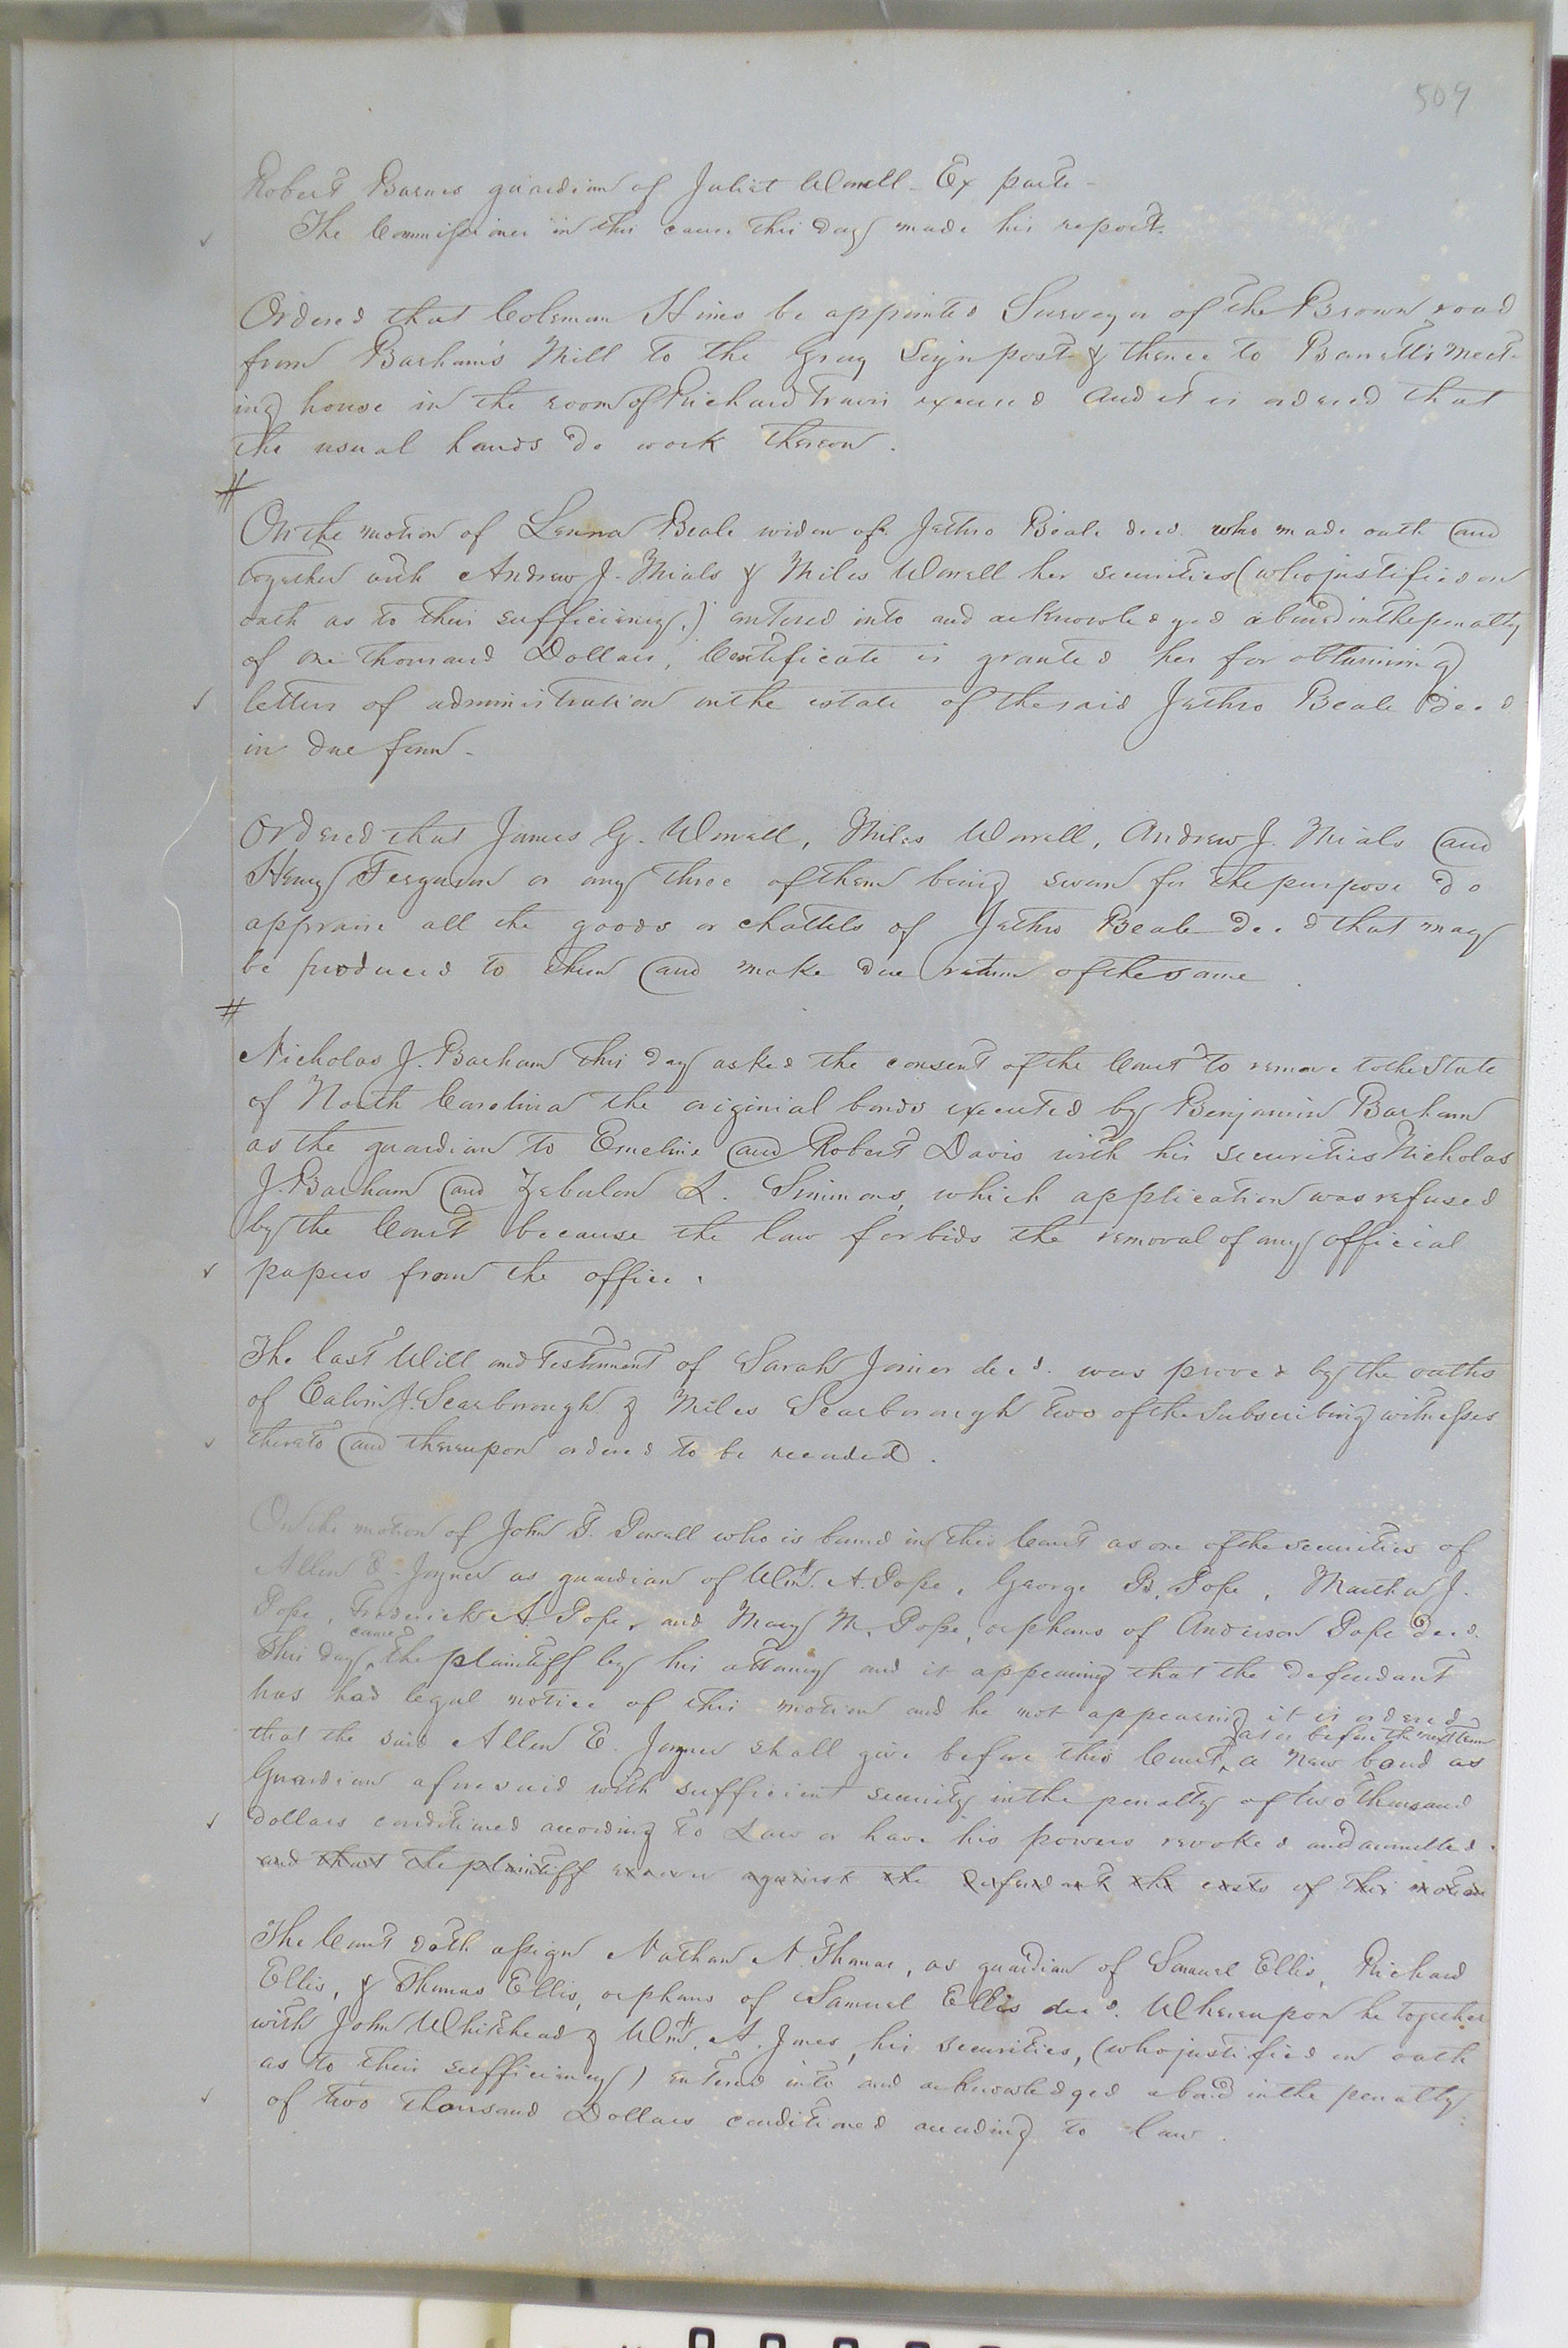 509
Robert Barnes guardian of Juliet Worrell - Ex parte -
The Commissioner in this cause this day made his report.
Ordered that Coleman Hines be appointed Surveyor of the Brown road
from Barham's Mill to the Gray Sign post & thence to Barrett's Meet-
ing house in the room of Richard Travis excused and it is ordered that
the usual hands do work thereon.
#
On the motion of Lenna Beale widow of Jethro Beale decd. who made oath and
together with Andrew J. Mials & Miles Worrell her securities (who justified on
oath as to their sufficiency,) entered into and acknowledged a bond in the penalty
of one thousand Dollars, Certificate is granted her for obtaining
letters of administration on the estate of the said Jethro Beale decd
in due form -
Ordered that James G. Worrell, Miles Worrell, Andrew J. Mials and
Henry Ferguson or any three of them being sworn for the purpose do
appraise all the goods or chattels of Jethro Beale decd that may
be produced to them and make due return of the same
#
Nicholas J. Barham this day asked the consent of the Court to remove to the State
of North Carolina the originial bonds executed by Benjamin Barham
as the guardian to Emeline and Robert Davis with his securities Nicholas
J. Barham and Zebulon L. Simmons, which application was refused
by the Court because the law forbids the removal of any official
papers from the office.
The last Will and Testament of Sarah Joiner decd. was proved by the oaths
of Calvin J. Scarborough & Miles Scarborough two of the subscribing witnesses
thereto and thereupon ordered to be recorded.
On the motion of John T. Powell who is bound in this Court as one of the securities of
Allen E. Joyner as guardian of Wm. A. Pope, George B. Pope, Martha J.
Pope, Frederick A. Pope, and Mary M. Pope, orphans of Anderson Pope decd.
This day came the plaintiff by his attorney and it appearing that the defendant
has had legal notice of this motion and he not appearing it is ordered
that the said Allen E. Joyner shall give before this Court, at or before the next term a new bond as
Guardian aforesaid with sufficient security in the penalty of two thousand
dollars conditioned according to Law or have his powers revoked and annulled.
and that the plaintiff recover against the defendant the costs of this motion
The Court doth assign Nathan N. Thomas, as guardian of Samuel Ellis, Richard
Ellis, & Thomas Ellis, orphans of Samuel Ellis decd. Whereupon he together
with John Whitehead & Wm. A. Jones, his securities, (who justified on oath
as to their sufficiency) entered into and acknowledged a bond in the penalty
of two thousand Dollars conditioned according to law.